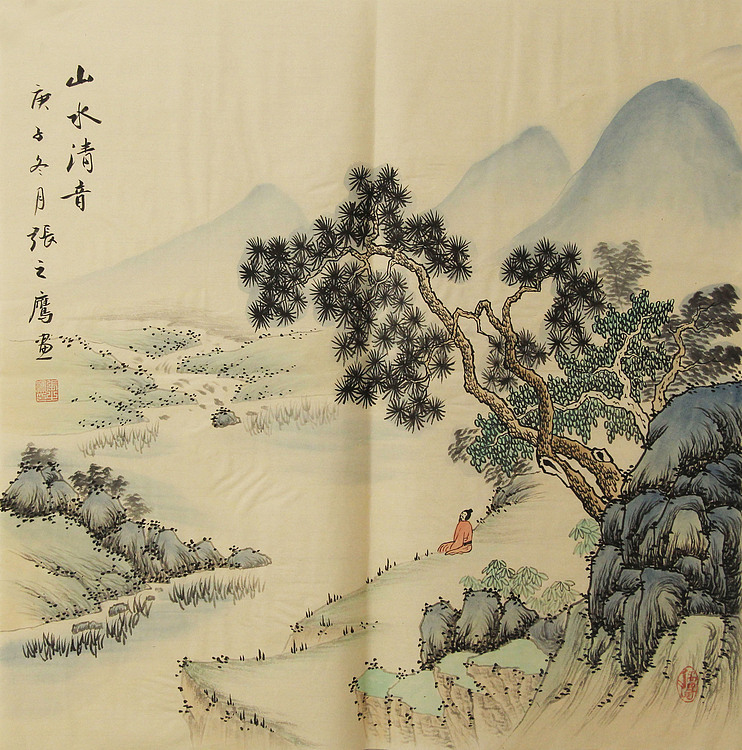 山水清音
庚午冬月張之鷹畫